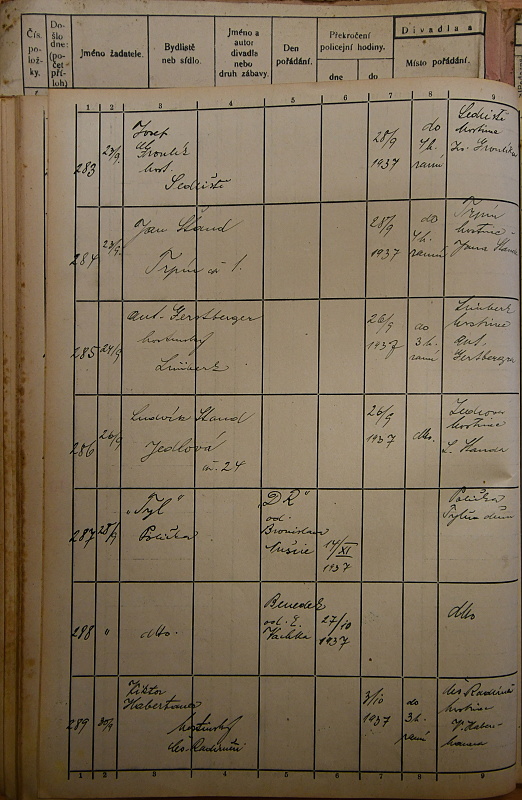 Čís. polož-ky.
Do-šlo dne: (počet příloh)
Jméno žadatele.
Bydliště neb sídlo.
Jméno a autor divadla nebo druh zábavy.
Den pořádání.
Překročení policejní hodiny.
dne
do
Divadla a
Místo pořádání.
1 2 3 4 5 6 7 8 9
283
Josef
host.
Sedliště
28/9
1937
do
4 h.
ranní
Sedliště
hostinec
284
Jan Štand
Trpín čís 1.
28/9
1937
do
4 h.
ranní
Trpín
hostinec
Jana
285
24/9
Ant. Gerstberger
hostinský
Limberk
26/9
1937
do
3 h.
ranní
Limberk
hostinec
Ant.
286
26/9
Ludvík Štand
Jedlová
čs. 24
26/9
1937
dtto.
hostinec
L. Štanda
287
28/9
„Tyl"
Polička
„DR"
od.
Bronislav
Nušič
14/XI
1937
Polička
Tylův dům
288
"
dtto.
Benedek
od. E.
27/10
1937
dtto
289
30/9
Viktor
Habertauer
hostinský
čes. Radimeř
3/10
1937
do
3 h.
ranní
hostinec
V. Haber-
1 2 3 4 5 6 7 8 9